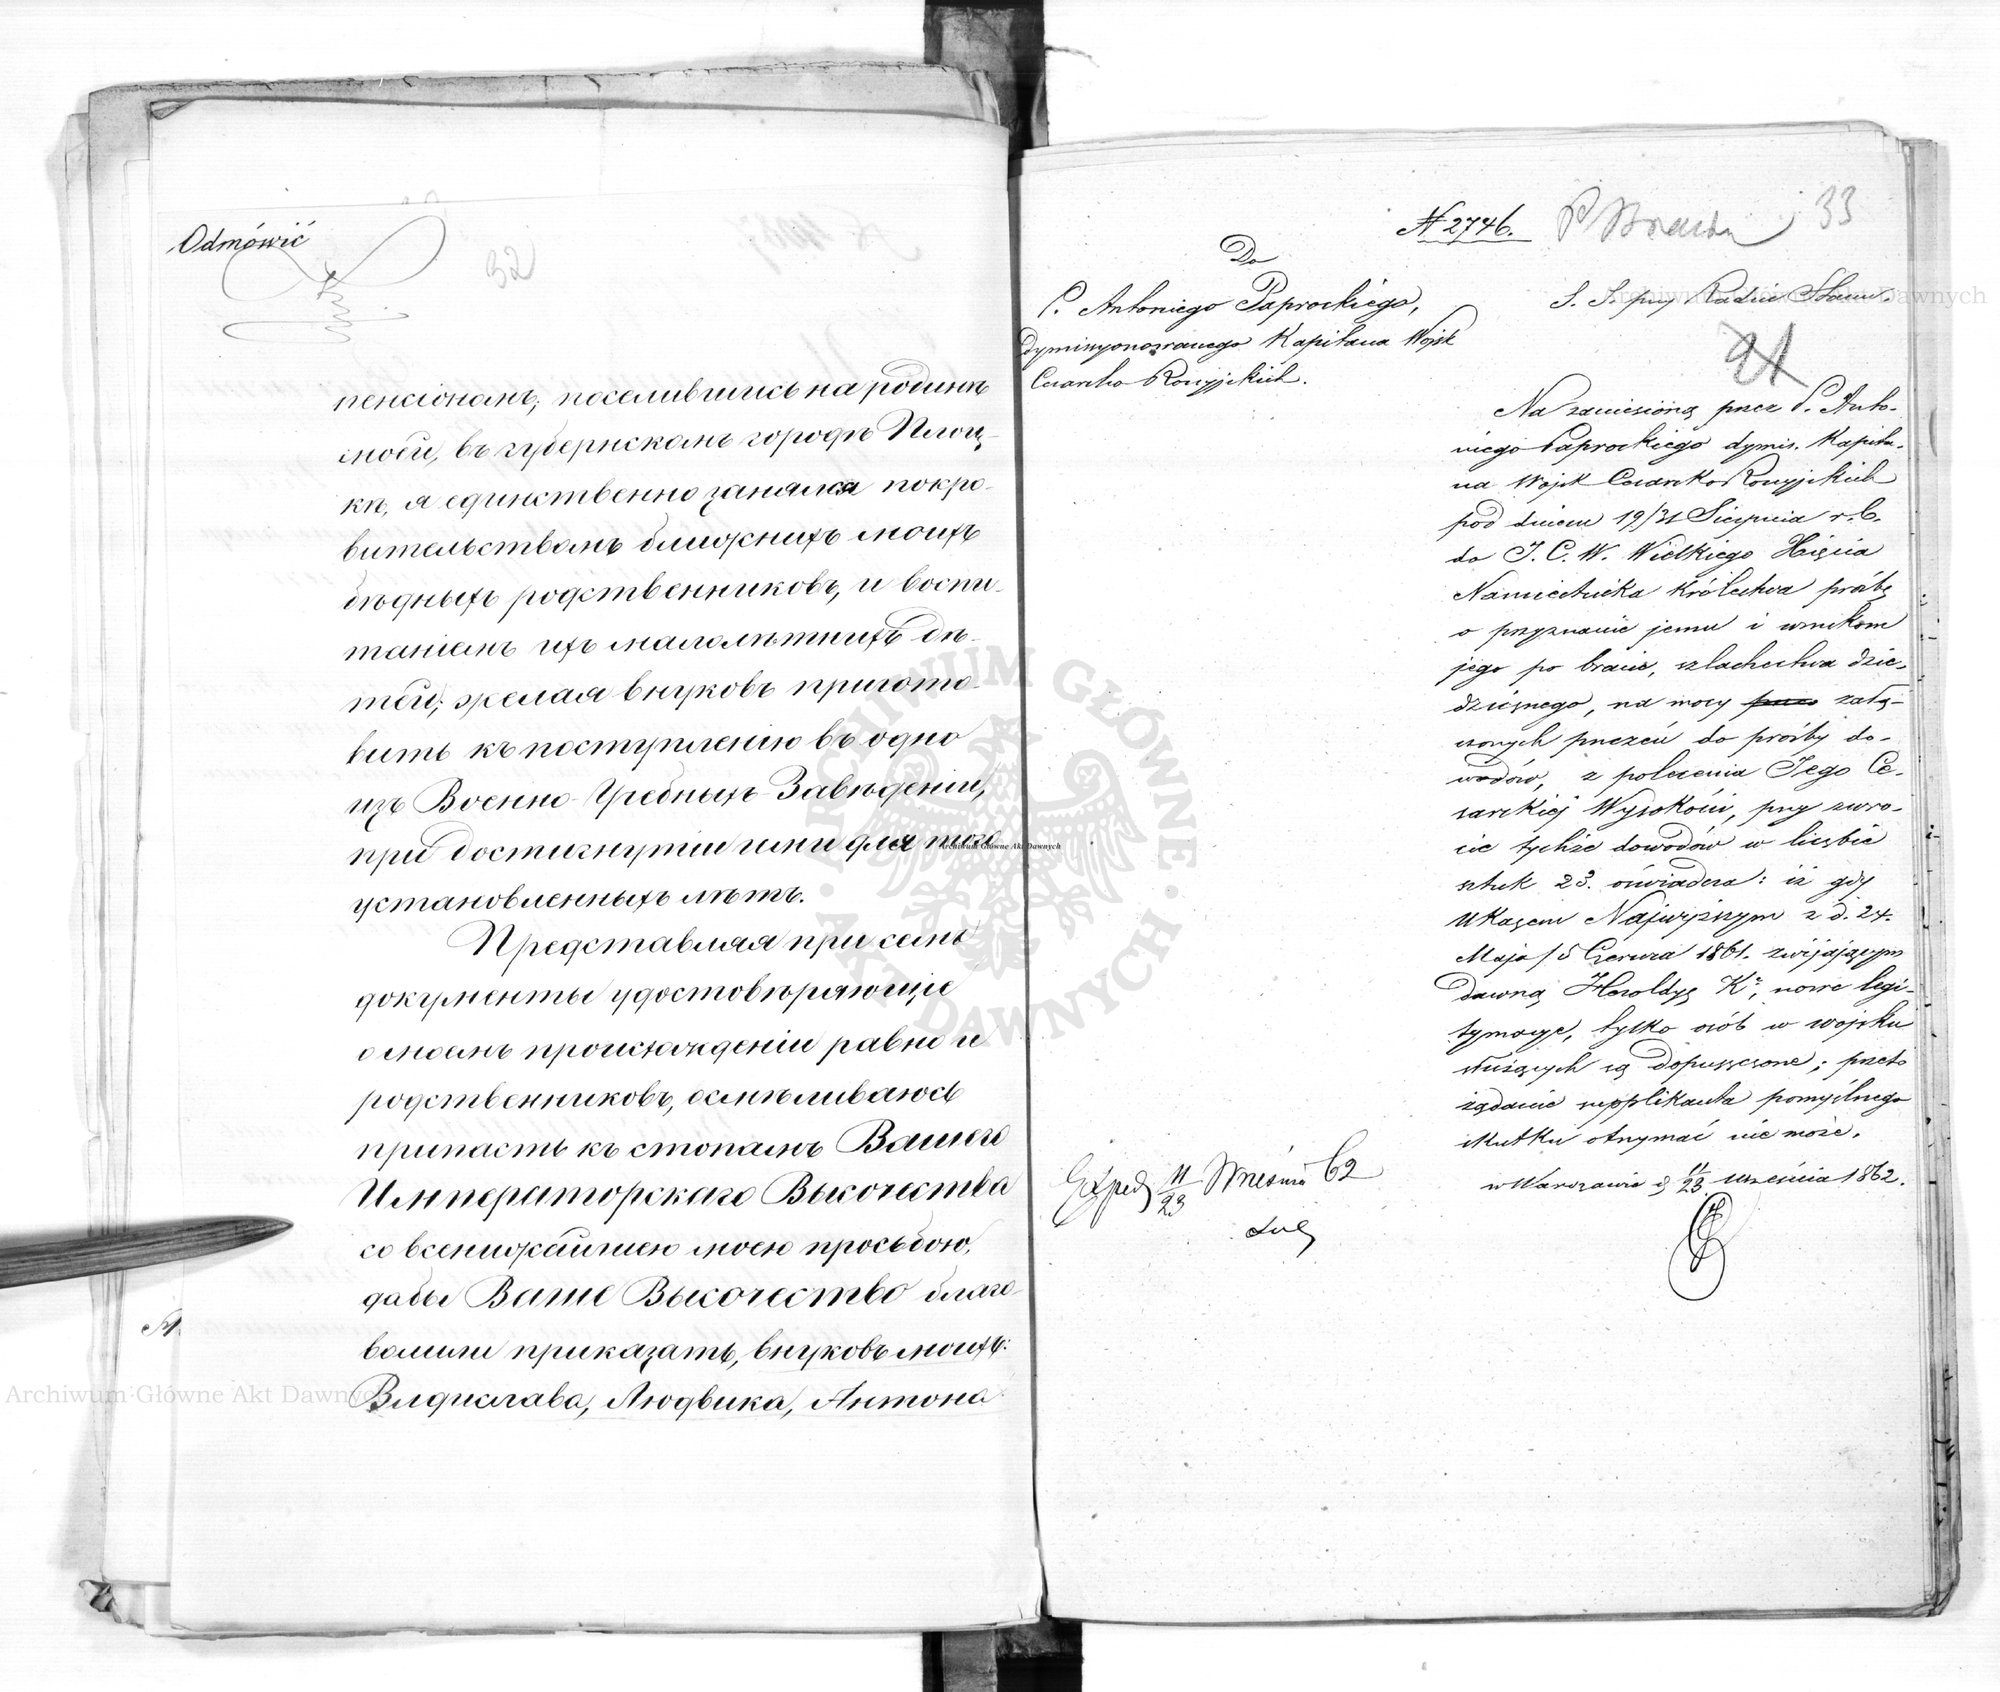 Odmówić
32
пенсіономъ, поселившись на родинѣ
моей, въ губернскомъ городѣ Плоц-
кѣ, я единственно занялся покро-
вительствомъ ближнихъ моихъ
бѣдныхъ родственниковъ, и воспи-
таніемъ ихъ малолѣтнихъ дѣ-
тей; желая внуковъ пригото-
вить къ поступленію въ одно
изъ Военно-Учебныхъ Заведеній,
при достигнутіи ими для того
установленныхъ лѣтъ.
Представляя при семъ
документы удостовѣряющіе
о моемъ происхожденіи равно и
родственниковъ, осмѣливаюсь
припасть къ стопамъ Вашего
Императорскаго Высочества
со всенижайшею моею просьбою,
дабы Ваше Высочество благо-
волили приказать, внуковъ моихъ:
Влдислава, Людвика, Антона
№ 2746.
33
Do
P. Antoniego Paprockiego,
dymisyonowanego Kapitana Wojsk
Cesarsko Rossyjskich.
S. S. przy Radzie Stanu.
21
Na zaniesioną przez P. Anto-
niego Paprockiego dymis. Kapita-
na Wojsk Cesarsko Rossyjskich
pod dniem 19/31 Sierpnia r. b.
do J. C. W. Wielkiego Xięcia
Namiestnika Królestwa prośbę
o przyznanie jemu i wnukom
jego po bracie, szlachectwa dzie-
dzicznego, na mocy przez załą-
czonych przezeń do prośby do-
wodów, z polecenia Jego Ce-
sarskiej Wysokości, przy zwro-
cie tychże dowodów w liczbie
sztuk 23. oświadcza: iż gdy
Ukazem Najwyższym z d. 24.
Maja / 5 Czerwca 1861. zwijającym
dawną Heroldyę Kr., nowe legi-
tymacye, tylko osób w wojsku
służących są dopuszczone; przeto
żądanie supplikanta pomyślnego
skutku otrzymać nie może.
w Warszawie d. 11/23 Września 1862.
Exped. 11/23 Września 62
Archiwum Główne Akt Dawnych
Archiwum Główne Akt Dawnych
Archiwum Główne Akt Dawnych
ARCHIWUM GŁÓWNE
AKT DAWNYCH